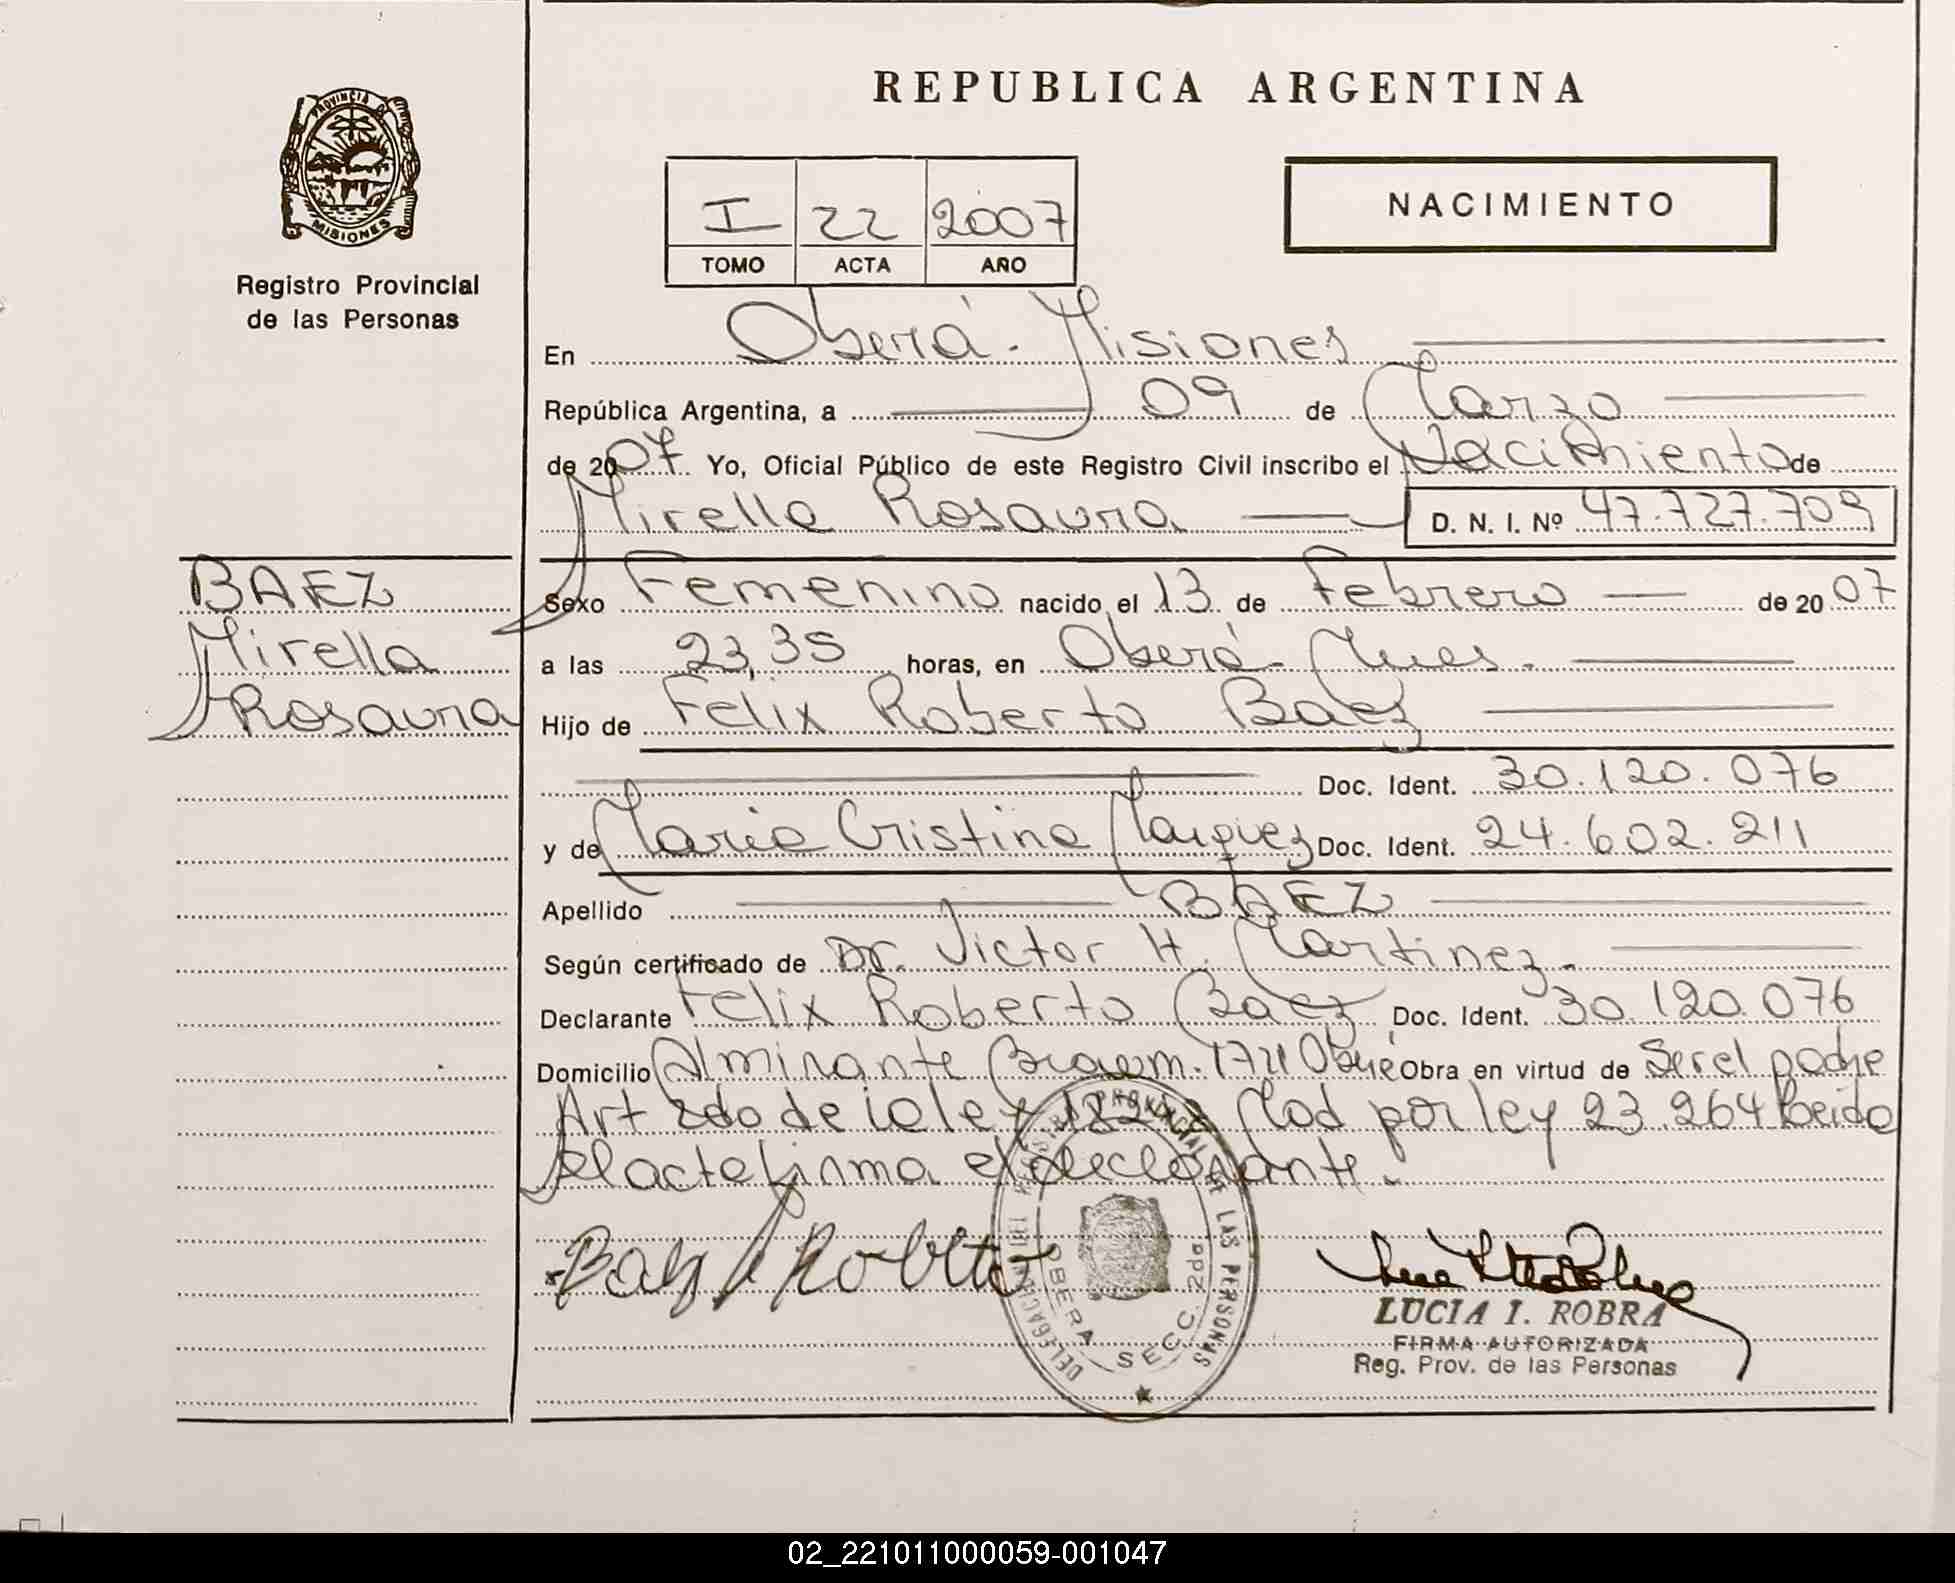 REPUBLICA ARGENTINA
PROVINCIA DE
MISIONES
Registro Provincial
de las Personas
I 22 2007
TOMO ACTA AÑO
NACIMIENTO
En Oberá - Misiones
República Argentina, a 09 de Marzo
de 2007 Yo, Oficial Público de este Registro Civil inscribo el Nacimiento de
Mirella Rosaura D. N. I. Nº 47.727.709
BAEZ
Mirella
Rosaura
Sexo Femenino nacido el 13 de Febrero de 2007
a las 23,35 horas, en Oberá - Mnes.
Hijo de Felix Roberto Baez
Doc. Ident. 30.120.076
y de Maria Cristina Marquez Doc. Ident. 24.602.211
Apellido BAEZ
Según certificado de Dr. Victor H. Martinez.
Declarante Felix Roberto Baez Doc. Ident. 30.120.076
Domicilio Almirante Brown. Obra en virtud de Ser el padre
Art 2do de la ley Mod por ley 23.264 Leida
el acta firma el declarante.
Baez Roberto
DELEGACION REGISTRO PROVINCIAL DE LAS PERSONAS
OBERA SECC. 2da
LUCIA I. ROBRA
FIRMA AUTORIZADA
Reg. Prov. de las Personas
02_221011000059-001047